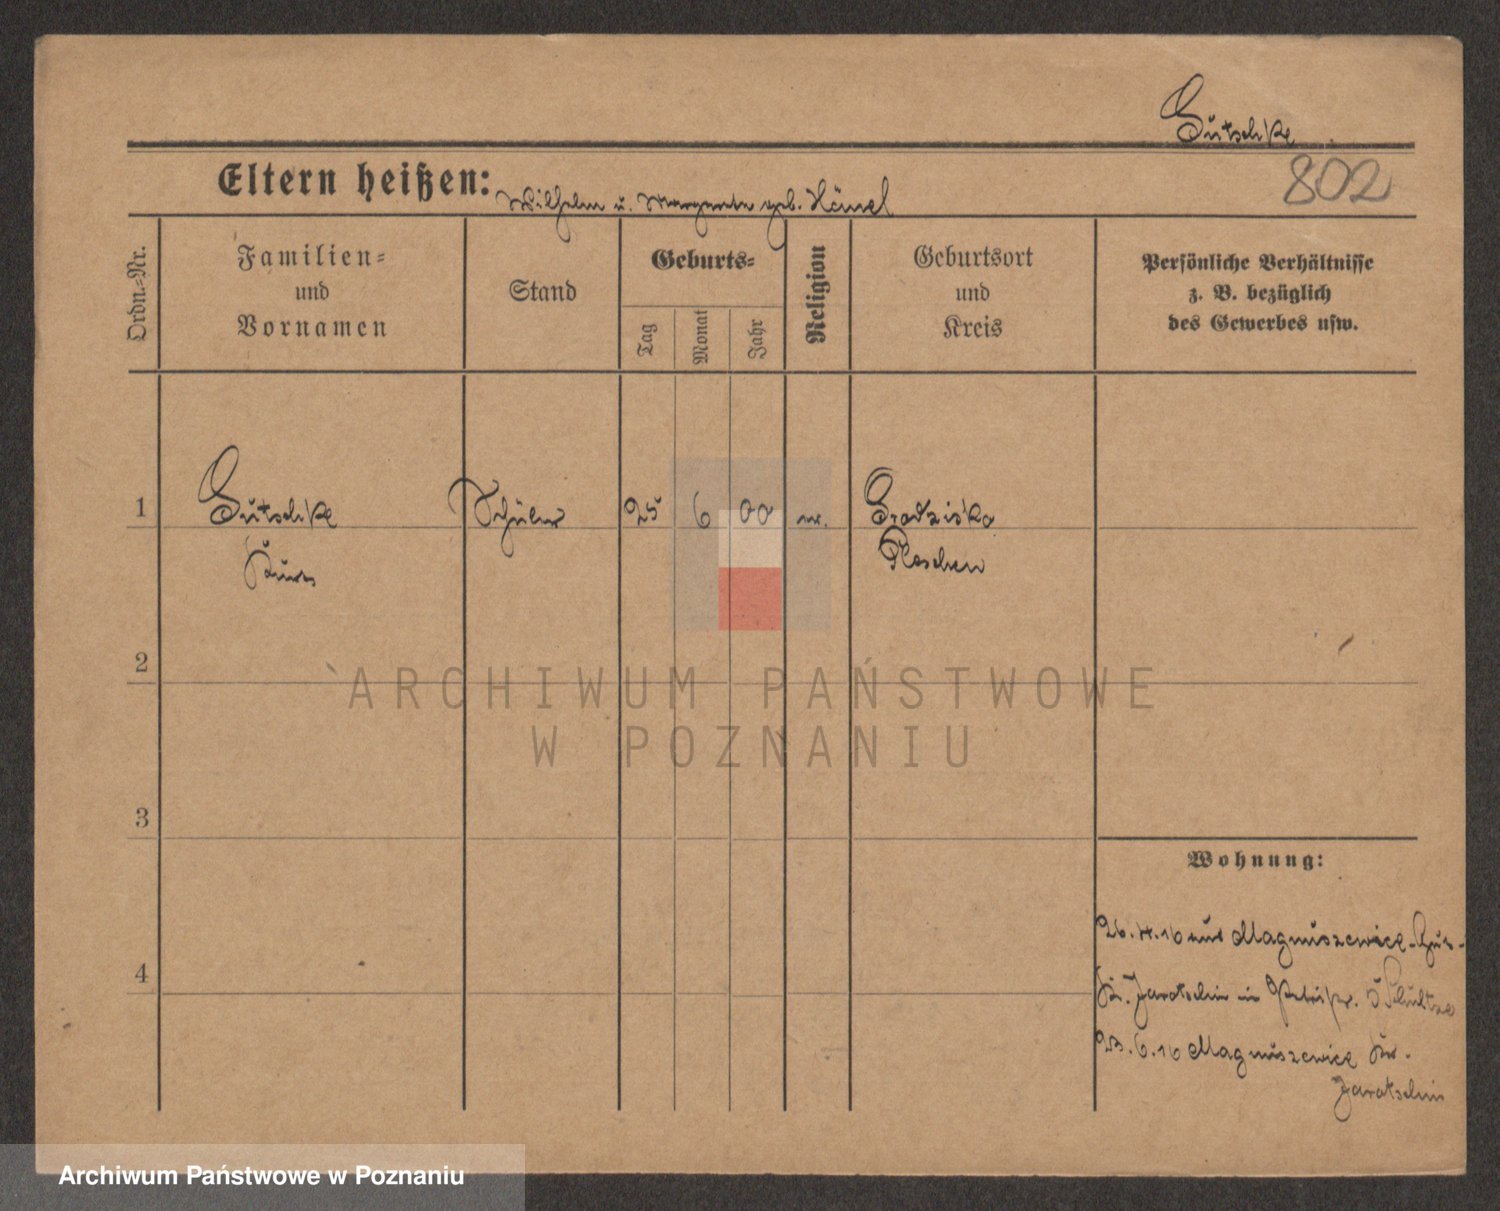 Gutschke
802
Eltern heißen: Wilhelm u. Margarete geb. Hänsel
Ordn.-Nr.
Familien- und Vornamen
Stand
Geburts-
Tag
Monat
Jahr
Religion
Geburtsort und Kreis
Persönliche Verhältnisse
z. B. bezüglich
des Gewerbes usw.
1 Gutschke Schüler 25 6 00 ev. Grodzisko
Pleschen
2
3
4
Wohnung:
26.4.16 aus Magnuszewice
Kr. Jarotschin in
23.6.16 Magnuszewice Kr.
Jarotschin
ARCHIWUM PAŃSTWOWE
W POZNANIU
Archiwum Państwowe w Poznaniu